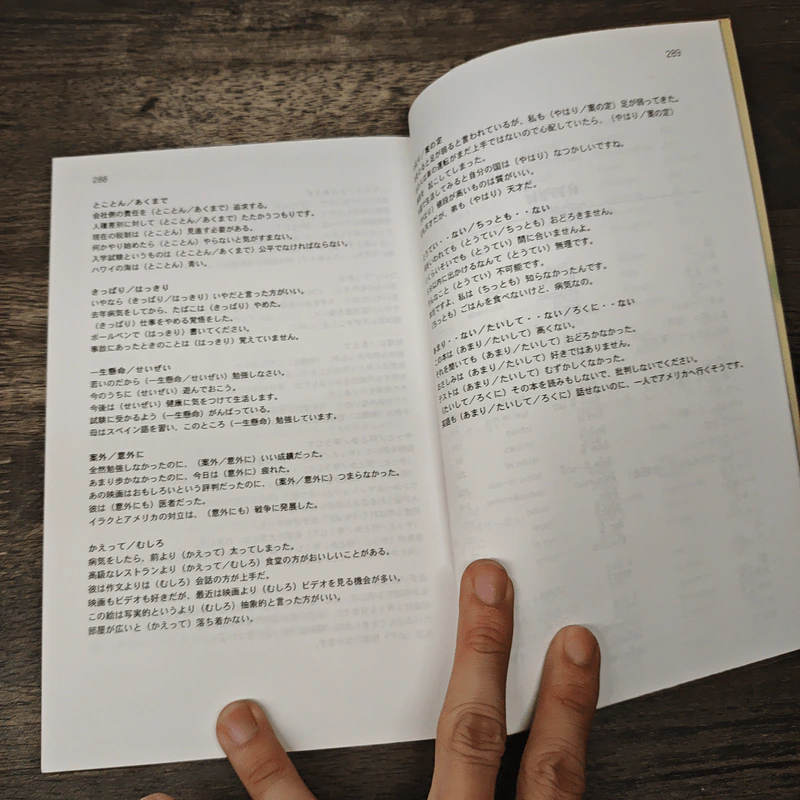 288
とことん／あくまで
会社側の責任を（とことん／あくまで）追求する。
人種差別に対して（とことん／あくまで）たたかうつもりです。
現在の税制は（とことん）見直す必要がある。
何かやり始めたら（とことん）やらないと気がすまない。
入学試験というものは（とことん／あくまで）公平でなければならない。
ハワイの海は（とことん）青い。
きっぱり／はっきり
いやなら（きっぱり／はっきり）いやだと言った方がいい。
去年病気をしてから、たばこは（きっぱり）やめた。
（きっぱり）仕事をやめる覚悟をした。
ボールペンで（はっきり）書いてください。
事故にあったときのことは（はっきり）覚えていません。
一生懸命／せいぜい
若いのだから（一生懸命／せいぜい）勉強しなさい。
今のうちに（せいぜい）遊んでおこう。
今後は（せいぜい）健康に気をつけて生活します。
試験に受かるよう（一生懸命）がんばっている。
母はスペイン語を習い、このところ（一生懸命）勉強しています。
案外／意外に
全然勉強しなかったのに、（案外／意外に）いい成績だった。
あまり歩かなかったのに、今日は（意外に）疲れた。
あの映画はおもしろいという評判だったのに、（案外／意外に）つまらなかった。
彼は（意外にも）医者だった。
イラクとアメリカの対立は、（意外にも）戦争に発展した。
かえって／むしろ
病気をしたら、前より（かえって）太ってしまった。
高級なレストランより（かえって）食堂の方がおいしいことがある。
彼は作文よりは（むしろ）会話の方が上手だ。
映画もビデオも好きだが、最近は映画より（むしろ）ビデオを見る機会が多い。
この絵は写実的というより（むしろ）抽象的と言った方がいい。
部屋が広いと（かえって）落ち着かない。
289
／案の定
と足が弱ると言われているが、私も（やはり／案の定）足が弱ってきた。
の運転がまだ上手ではないので心配していたら、（やはり／案の定）
起こしてしまった。
で生活してみると自分の国は（やはり）なつかしいですね。
値段が高いものは質がいい。
天才だが、弟も（やはり）天才だ。
とうてい・・ない／ちっとも・・ない
いわれても（とうてい／ちっとも）おどろきません。
いそいでも（とうてい）間に合いませんよ。
に出かけるなんて（とうてい）無理です。
こと（とうてい）不可能です。
ですよ、私は（ちっとも）知らなかったんです。
（ちっとも）ごはんを食べないけど、病気なの。
あまり・・ない／たいして・・ない／ろくに・・ない
この本は（あまり／たいして）高くない。
それを聞いても（あまり／たいして）おどろかなかった。
おさしみは（あまり／たいして）好きではありません。
テストは（あまり／たいして）むずかしくなかった。
（たいして／ろくに）その本を読みもしないで、批判しないでください。
英語も（あまり／たいして／ろくに）話せないのに、一人でアメリカへ行くそうです。